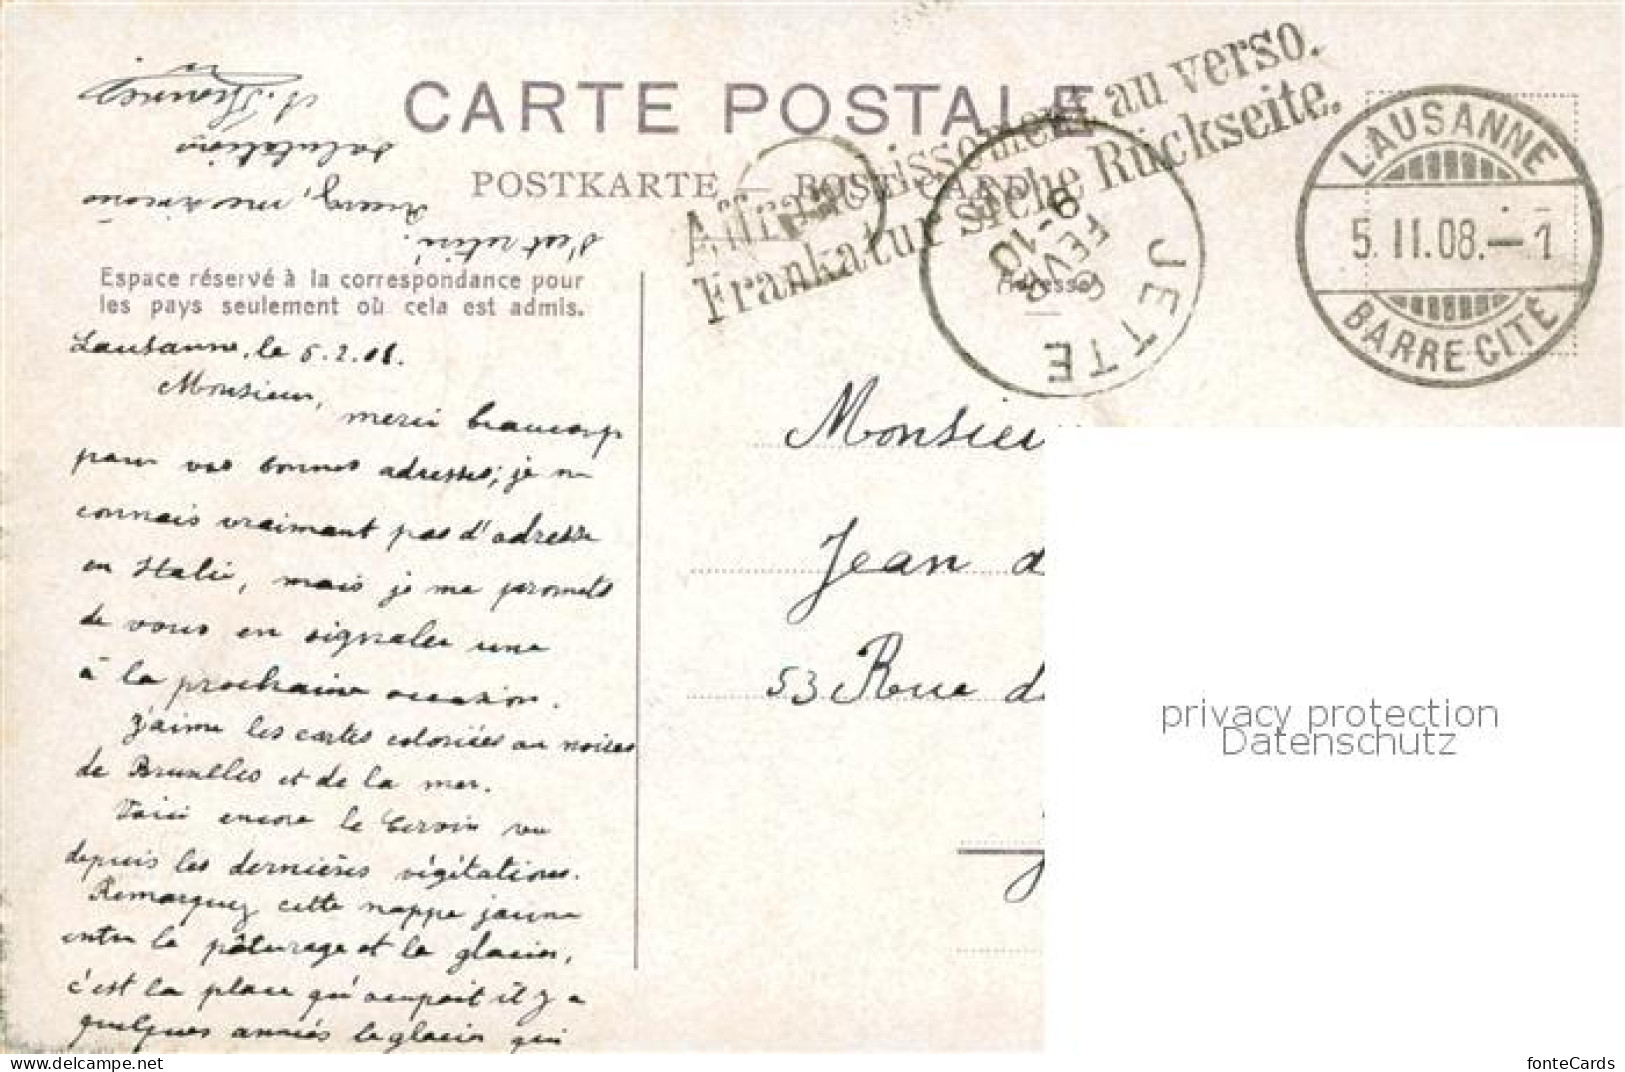 CARTE POSTALE
POSTKARTE — POST CARD
Affranchissement au verso.
Frankatur siehe Rückseite.
LAUSANNE
5.II.08.—1
BARRE CITÉ
JETTE
9-10
6 FEVR
Adresse
Espace réservé à la correspondance pour
les pays seulement où cela est admis.
Lausanne, le 5.2.08.
Monsieur,
merci beaucoup
pour vos bonnes adresses; je ne
connais vraiment pas d'adresse
en Italie, mais je me promets
de vous en signaler une
à la prochaine occasion.
J'aime les cartes coloriées ou noires
de Bruxelles et de la mer.
Voici encore le Cervin vu
depuis les dernières végétations.
Remarquez cette nappe jaune
entre le pâturage et le glacier,
c'est la place qu'occupait il y a
quelques années le glacier qui
s'est retiré.
Recevez, mes sincères
salutations
Monsieu
Jean d
53 Rue d
privacy protection
Datenschutz
www.delcampe.net
fonteCards